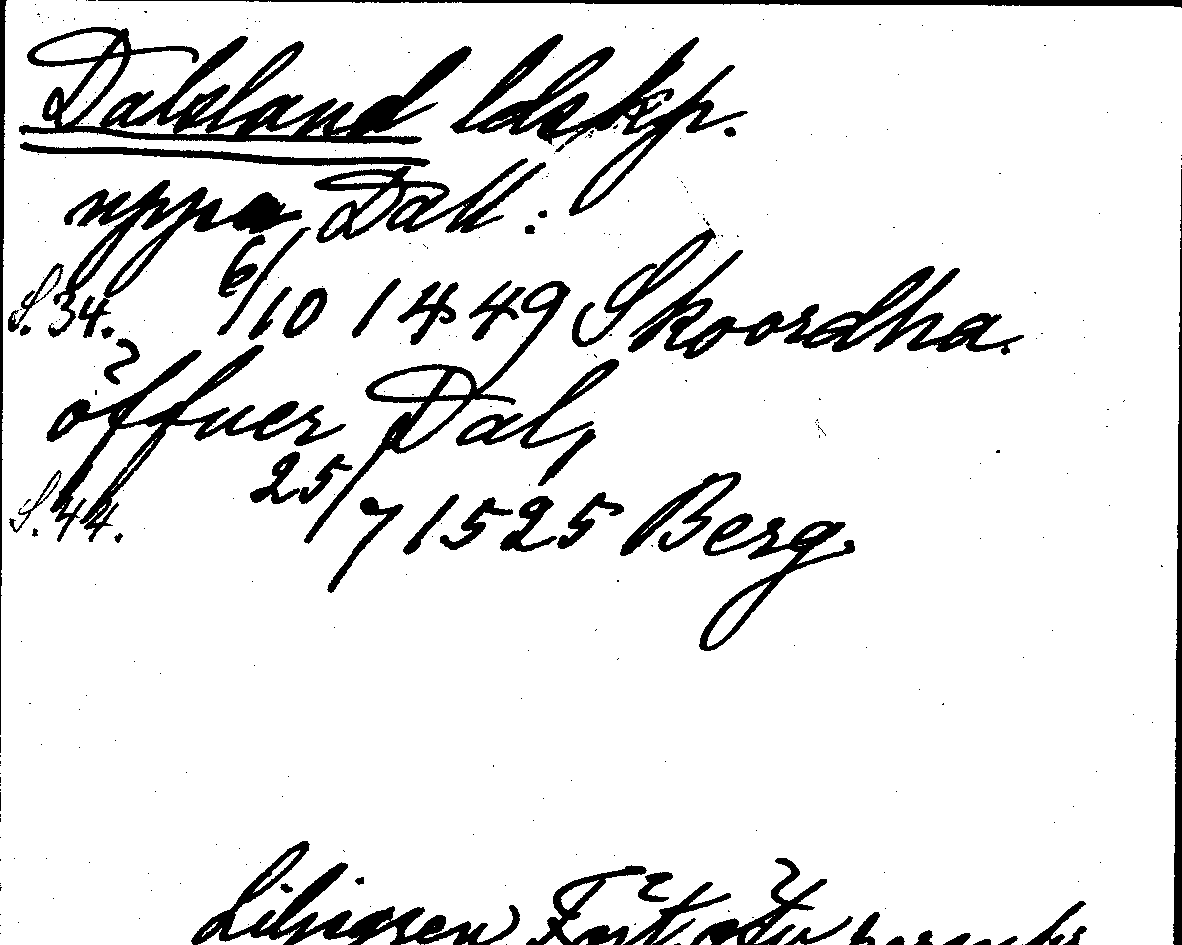 Dalsland ldskp.
uppa Dall:
S. 34. 6/10 1449 Skoordha.
öffuer Dal,
S. 44. 25/7 1525 Berg.
Liljegren, Fört. öfv.